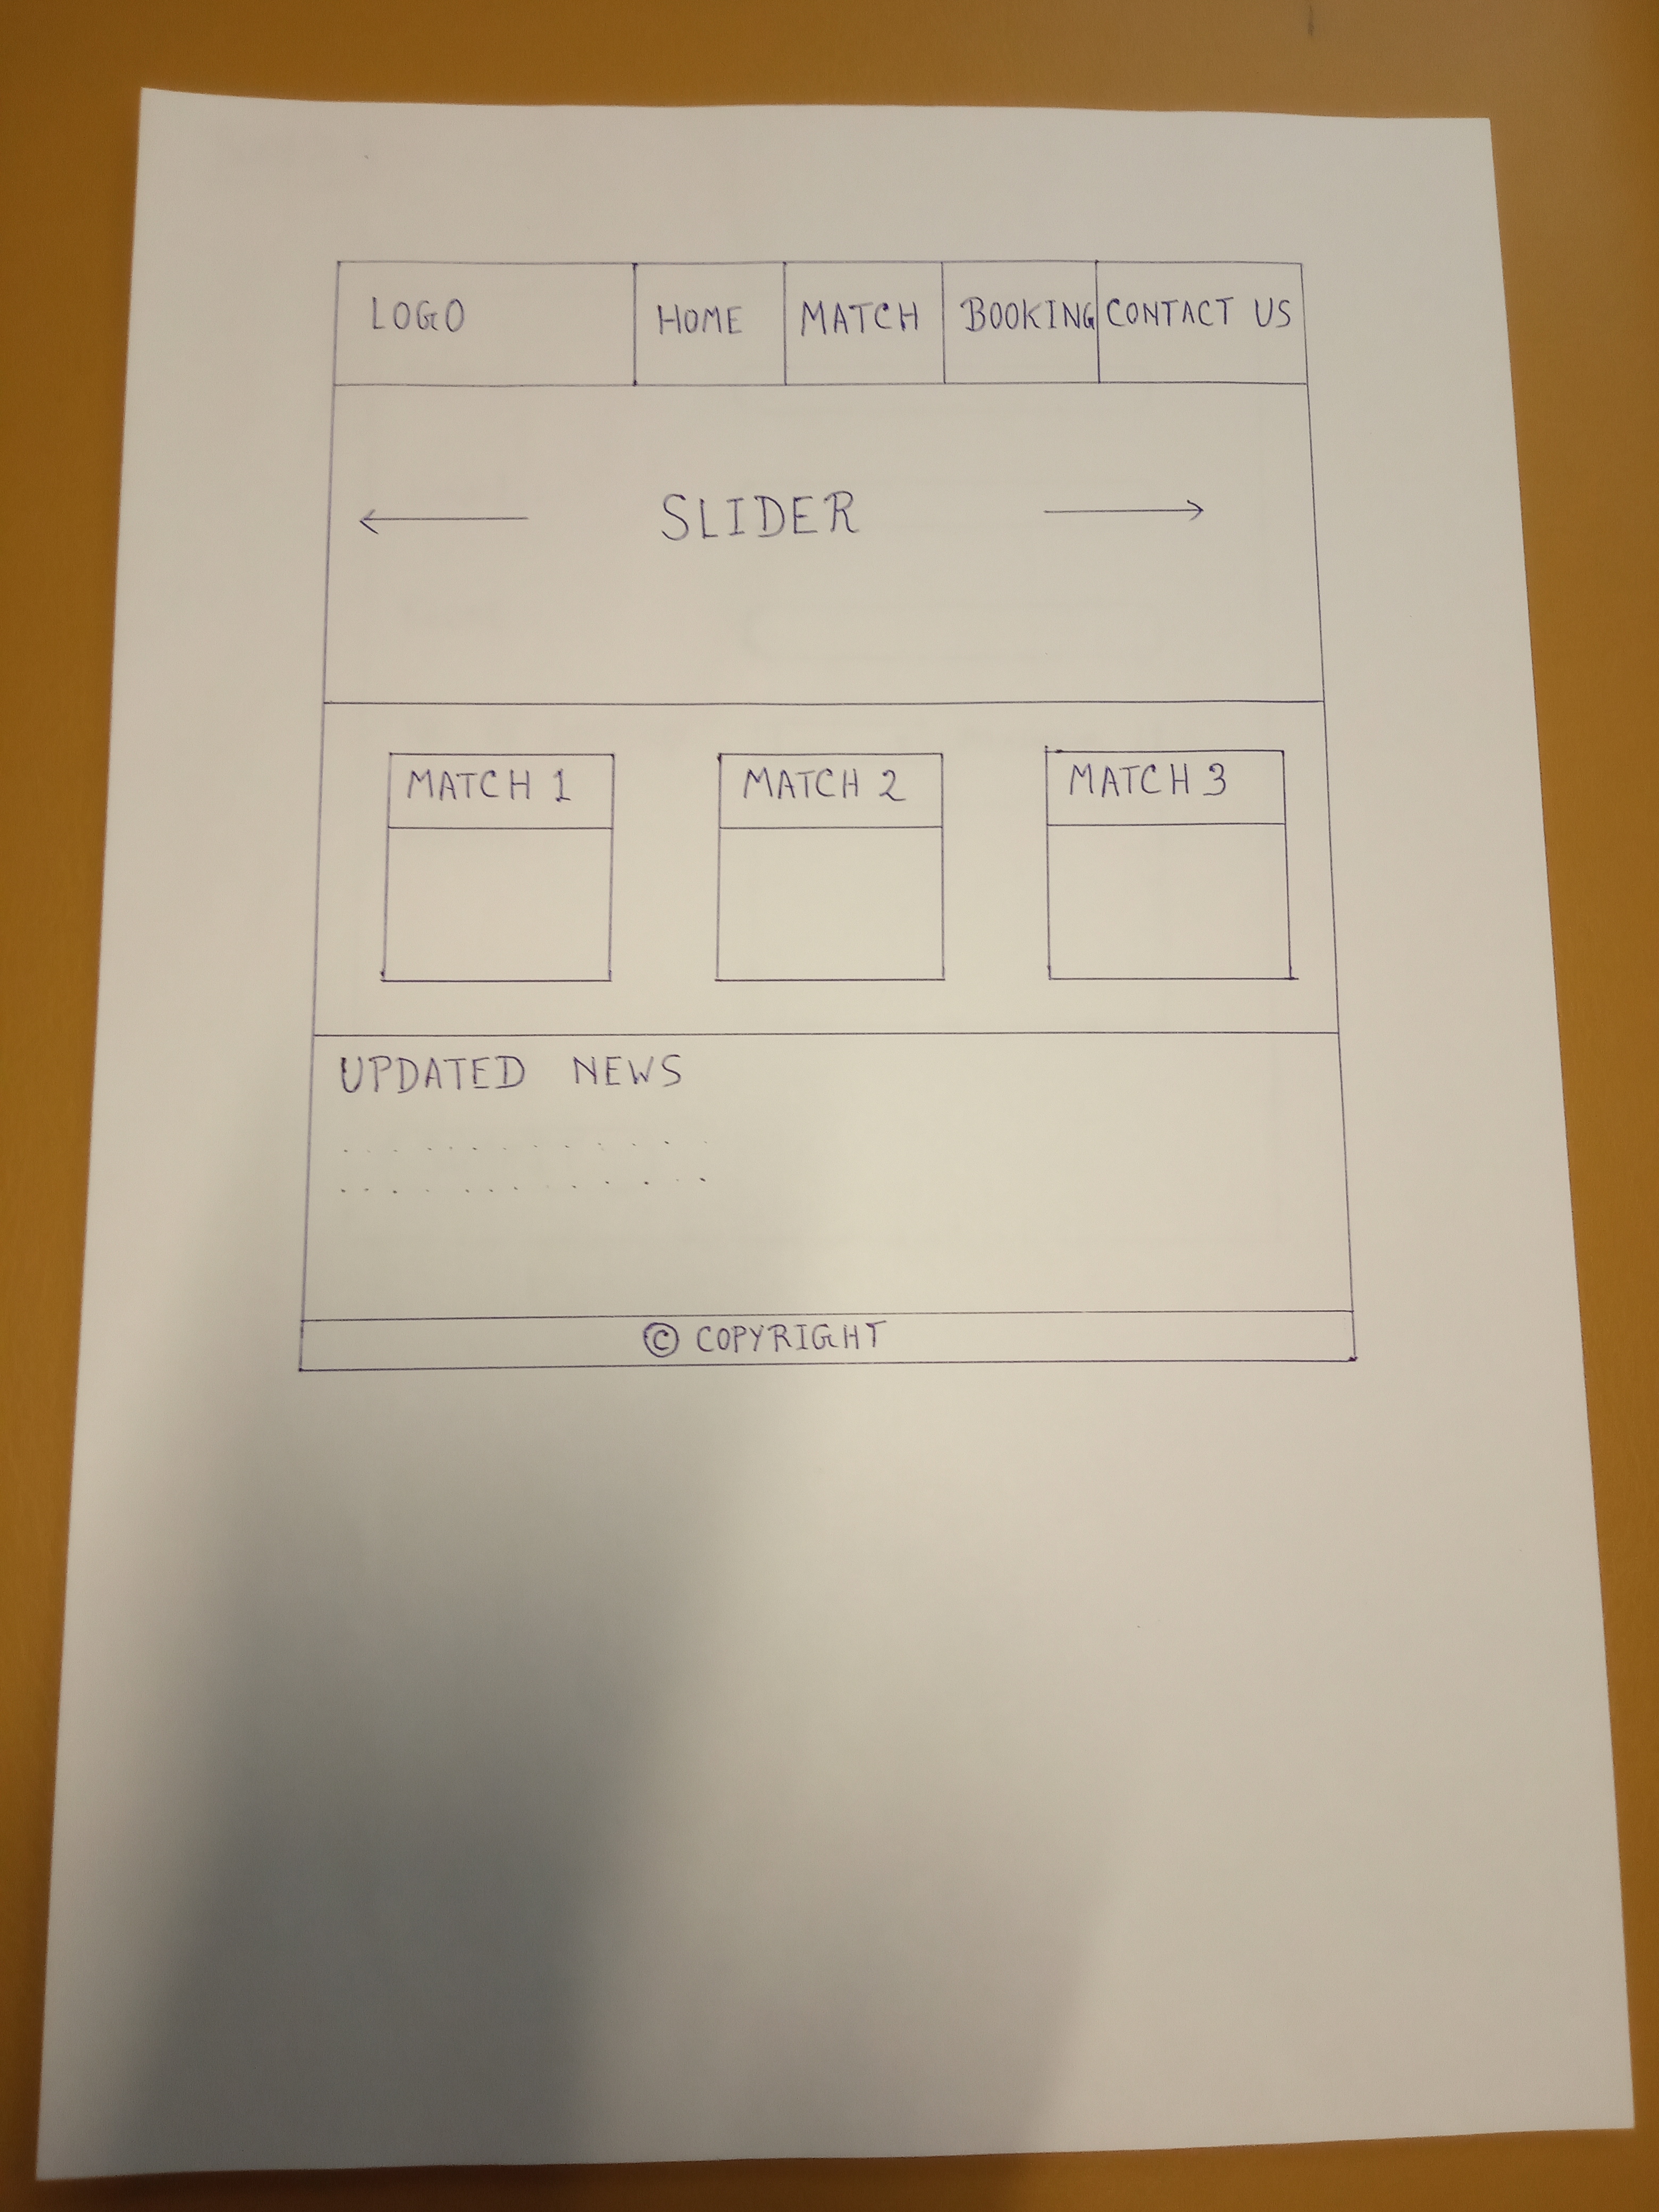 LOGO HOME MATCH BOOKING CONTACT US
SLIDER
MATCH 1 MATCH 2 MATCH 3
UPDATED NEWS
© COPYRIGHT